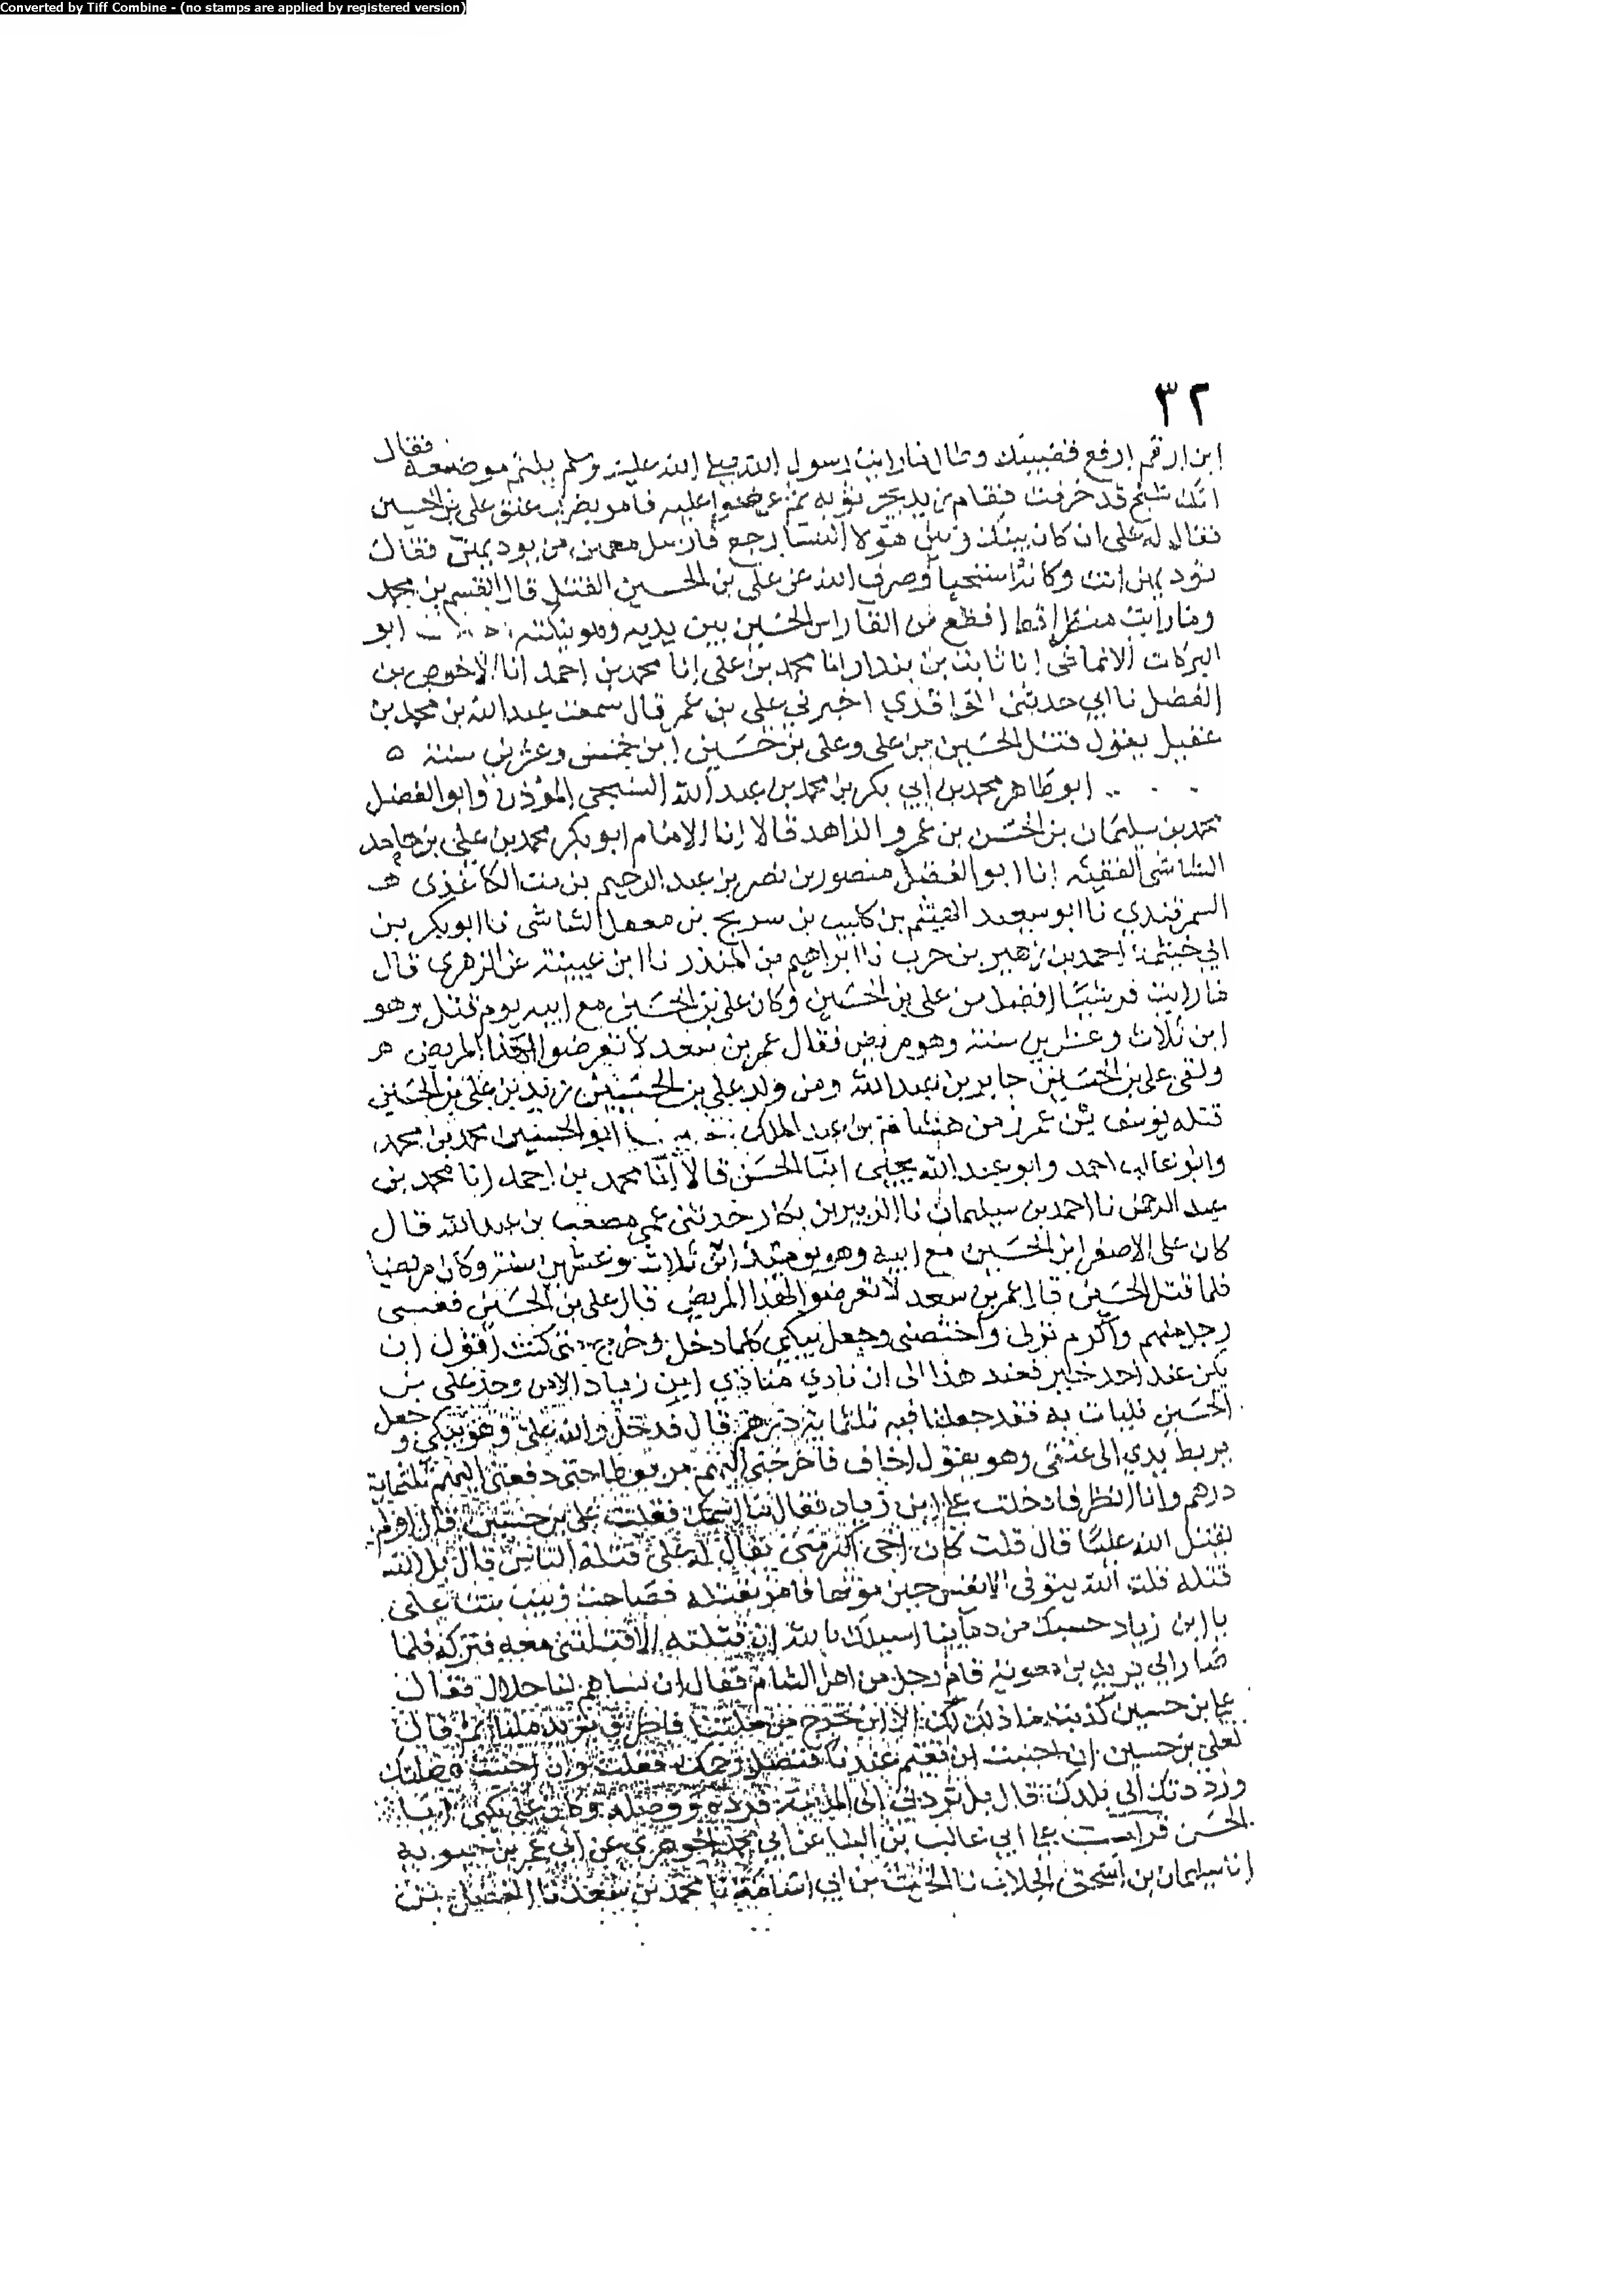 Converted by Tiff Combine - (no stamps are applied by registered version)
٣٢
ابن ارقم ارفع قضيبك وطال ما رايت رسول الله صلى الله عليه وسلم يلثم موضعه فقال
انك شيخ قد خرفت فقام زيد يجر ثوبه ثم عرضوا عليه فامر بضرب عنق علي بن الحسين
فقال له علي ان كان بينك وبين هولا النسا رجع فارسل معهن من يود بهن فقال
تود بهن انت وكانه استحيا وصرف الله عن علي بن الحسين القتل قال القسم بن محمد
وما رايت منظرا قط افظع من القا راس الحسين بين يديه وهو ينكته ابو
البركات الانماطي انا ثابت بن بندار انا محمد بن علي انا محمد بن احمد انا الاحوص بن
الفضل نا ابي حدثني الواقدي اخبرني علي بن عمر قال سمعت عبد الله بن محمد بن
عقيل يقول قتل الحسين بن علي وعلي بن حسين ابن خمس وعشرين سنة ه
ابو طاهر محمد بن ابي بكر بن محمد بن عبد الله السنجي المؤذن وابو الفضل
محمد بن سليمان بن الحسن بن عمرو الزاهد قالا انا الامام ابو بكر محمد بن علي بن حامد
الشاشي الفقيه انا ابو الفضل منصور بن نصر بن عبد الرحيم بن بنت الكاغذي هـ
السمرقندي نا ابو سعيد الهيثم بن كليب بن سريج بن معقل الشاشي نا ابو بكر بن
ابي خيثمة احمد بن زهير بن حرب نا ابراهيم بن المنذر نا ابن عيينة عن الزهري قال
ما رايت قرشيا افضل من علي بن الحسين وكان علي بن الحسين مع ابيه يوم قتل وهو
ابن ثلاث وعشرين سنة وهو مريض فقال عمر بن سعد لا تعرضوا لهذا المريض هـ
ولقي علي بن الحسين جابر بن عبد الله ومن ولد علي بن الحسين زيد بن علي بن الحسين
قتله يوسف بن عمر زمن هشام بن عبد الملك ابو الحسين محمد بن محمد
وابو غالب احمد وابو عبد الله يحيى ابنا الحسن قالا انا محمد بن احمد انا محمد بن
عبد الرحمن نا احمد بن سليمان نا الزبير بن بكار حدثني عمي مصعب بن عبد الله قال
كان علي الاصغر ابن الحسين مع ابيه وهو يومئذ ابن ثلاث وعشرين سنة وكان مريضا
فلما قتل الحسين قال عمر بن سعد لا تعرضوا لهذا المريض قال علي بن الحسين فغيبني
رجل منهم واكرم نزلي واختصني وجعل يبكي كلما دخل وخرج حتى كنت اقول ان
يكن عند احد خير فعند هذا الى ان نادي منادي ابن زياد الا من وجد علي بن
الحسين فليات به فقد جعلنا فيه ثلثماية درهم قال فدخل والله علي وهو يبكي وجعل
يربط يدي الى عنقي وهو يقول اخاف فاخرجني اليهم مربوطا حتى دفعني اليهم ثلثماية
درهم وانا انظر فادخلت على ابن زياد فقال ما اسمك فقلت علي بن حسين قال اولم
يقتل الله عليا قال قلت كان اخي اكبر مني يقال له علي قتله الناس قال بل الله
قتله قلت الله يتوفى الانفس حين موتها فامر بقتله فصاحت زينب بنت علي
يا ابن زياد حسبك من دماينا اسيلك بالله ان قتلته الا قتلتني معه فتركه فلما
صار الى يزيد بن معوية قام رجل من اهل الشام فقال ان نساهم لنا حلال فقال
علي بن حسين كذبت ما ذلك لك الا ان تخرج من ملتنا فاطرق يزيد مليا ثم قال
لعلي بن حسين ان احببت ان تقيم عندنا فنصل رحمك فعلت وان احببت وصلتك
ورددتك الى بلدك قال بل تردني الى المدينة فرده ووصله وكان علي يكنى ابا
الحسن قرات على ابي غالب بن البنا عن ابي محمد الجوهري عن ابي عمر بن حيويه
انا سليمان بن اسحق الجلاب نا الحرث بن ابي اسامة نا محمد بن سعد نا الفضل بن